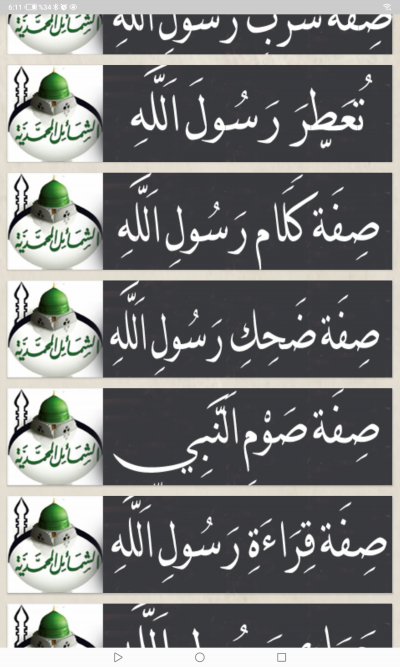 6:11 %34
صِفَة شُرْبِ رَسُولِ اَللَّهِ
الشمائل المحمدية
تُعَطِّرَ رَسُولَ اَللَّهِ
الشمائل المحمدية
صِفَة كَلَام رَسُولِ اَللَّهِ
الشمائل المحمدية
صِفَة ضَحِكِ رَسُولِ اَللَّهِ
الشمائل المحمدية
صِفَة صَوْمِ اَلنَّبِي
الشمائل المحمدية
صِفَة قِرَاءَةِ رَسُولِ اَللَّهِ
الشمائل المحمدية
رَسُولِ اَللَّهِ